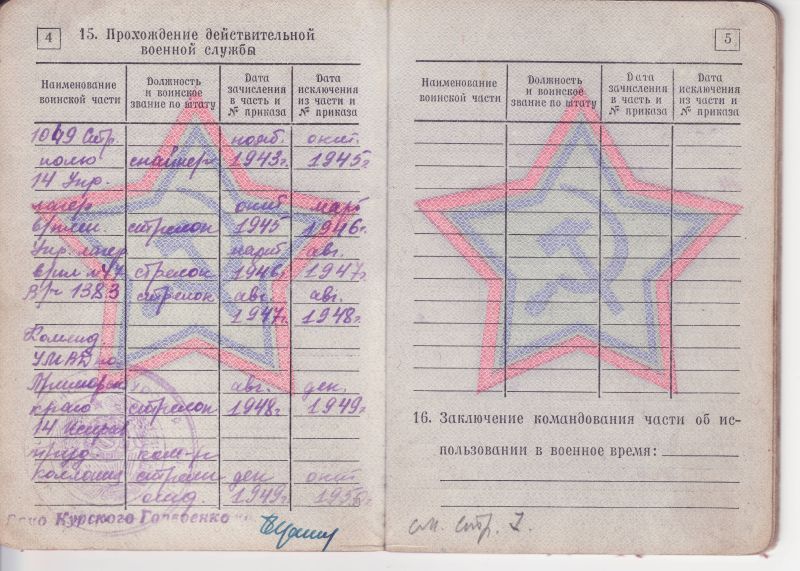 4
15. Прохождение действительной
военной службы
Наименование воинской части
Должность и воинское звание по штату
Дата зачисления в часть и № приказа
Дата исключения из части и № приказа
1049 Стр. нояб. окт.
полю снайпер 1943г. 1945г.
14 Упр.
лагер окт март
стрелок 1945 1946г.
Упр. лагер март авг.
стрелок 1946г. 1947г.
В/ч 1383 стрелок авг. авг.
1947г. 1948г.
УМВД по
Приморск авг. ден.
краю стрелок 1948г. 1949г.
14 Исправ
труд
колонии ден окт
1949г.
Курского
5
Наименование воинской части
Должность и воинское звание по штату
Дата зачисления в часть и № приказа
Дата исключения из части и № приказа
16. Заключение командования части об ис-
пользовании в военное время:
см. стр. 7.